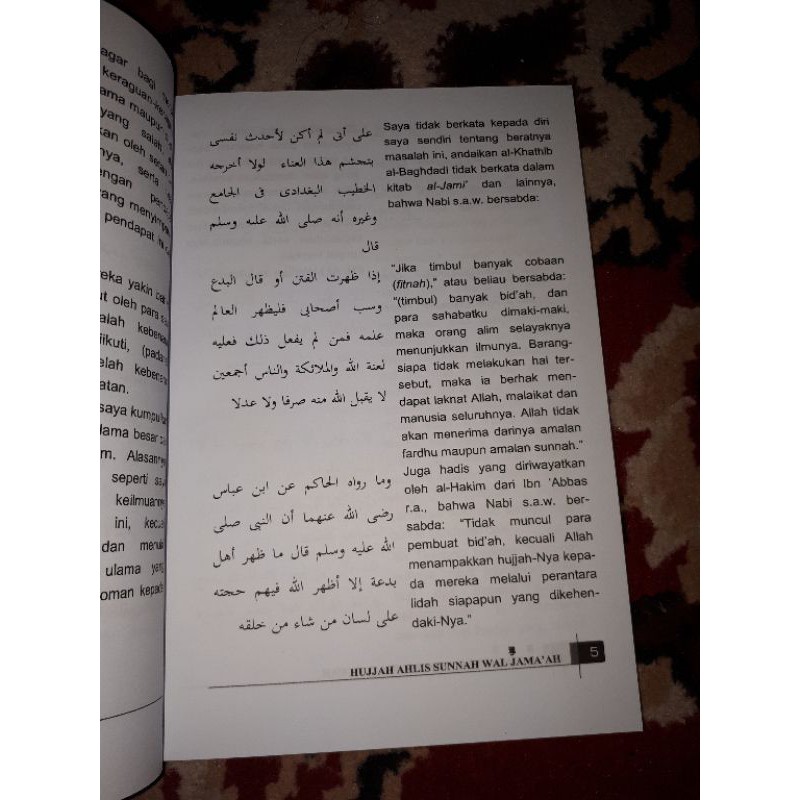 agar bagi
keraguan-ke
ama maupun
yang salah.
kan oleh
nya, serta
engan
ang menyimpa
pendapat
eka yakin
ut oleh para
alah kebena
ikuti, (pada
elah kebena
atan.
saya kumpulkan
lama besar
m. Alasannya
seperti
keilmuann
ini, kecua
dan menul
ulama yang
oman kepada
على أنى لم أكن لأحدث نفسى
بتحشم هذا العناء لولا أخرجه
الخطيب البغدادى فى الجامع
وغيره أنه صلى الله عليه وسلم
قال
إذا ظهرت الفتن أو قال البدع
وسب أصحابى فليظهر العالم
علمه فمن لم يفعل ذلك فعليه
لعنة الله والملائكة والناس أجمعين
لا يقبل الله منه صرفا ولا عدلا
وما رواه الحاكم عن ابن عباس
رضى الله عنهما أن النبى صلى
الله عليه وسلم قال ما ظهر أهل
بدعة إلا أظهر الله فيهم حجته
على لسان من شاء من خلقه
Saya tidak berkata kepada diri
saya sendiri tentang beratnya
masalah ini, andaikan al-Khathib
al-Baghdadi tidak berkata dalam
kitab al-Jami' dan lainnya,
bahwa Nabi s.a.w. bersabda:
"Jika timbul banyak cobaan
(fitnah)," atau beliau bersabda:
"(timbul) banyak bid'ah, dan
para sahabatku dimaki-maki,
maka orang alim selayaknya
menunjukkan ilmunya. Barang-
siapa tidak melakukan hal ter-
sebut, maka ia berhak men-
dapat laknat Allah, malaikat dan
manusia seluruhnya. Allah tidak
akan menerima darinya amalan
fardhu maupun amalan sunnah."
Juga hadis yang diriwayatkan
oleh al-Hakim dari Ibn 'Abbas
r.a., bahwa Nabi s.a.w. ber-
sabda: "Tidak muncul para
pembuat bid'ah, kecuali Allah
menampakkan hujjah-Nya kepa-
da mereka melalui perantara
lidah siapapun yang dikehen-
daki-Nya."
HUJJAH AHLIS SUNNAH WAL JAMA'AH 5